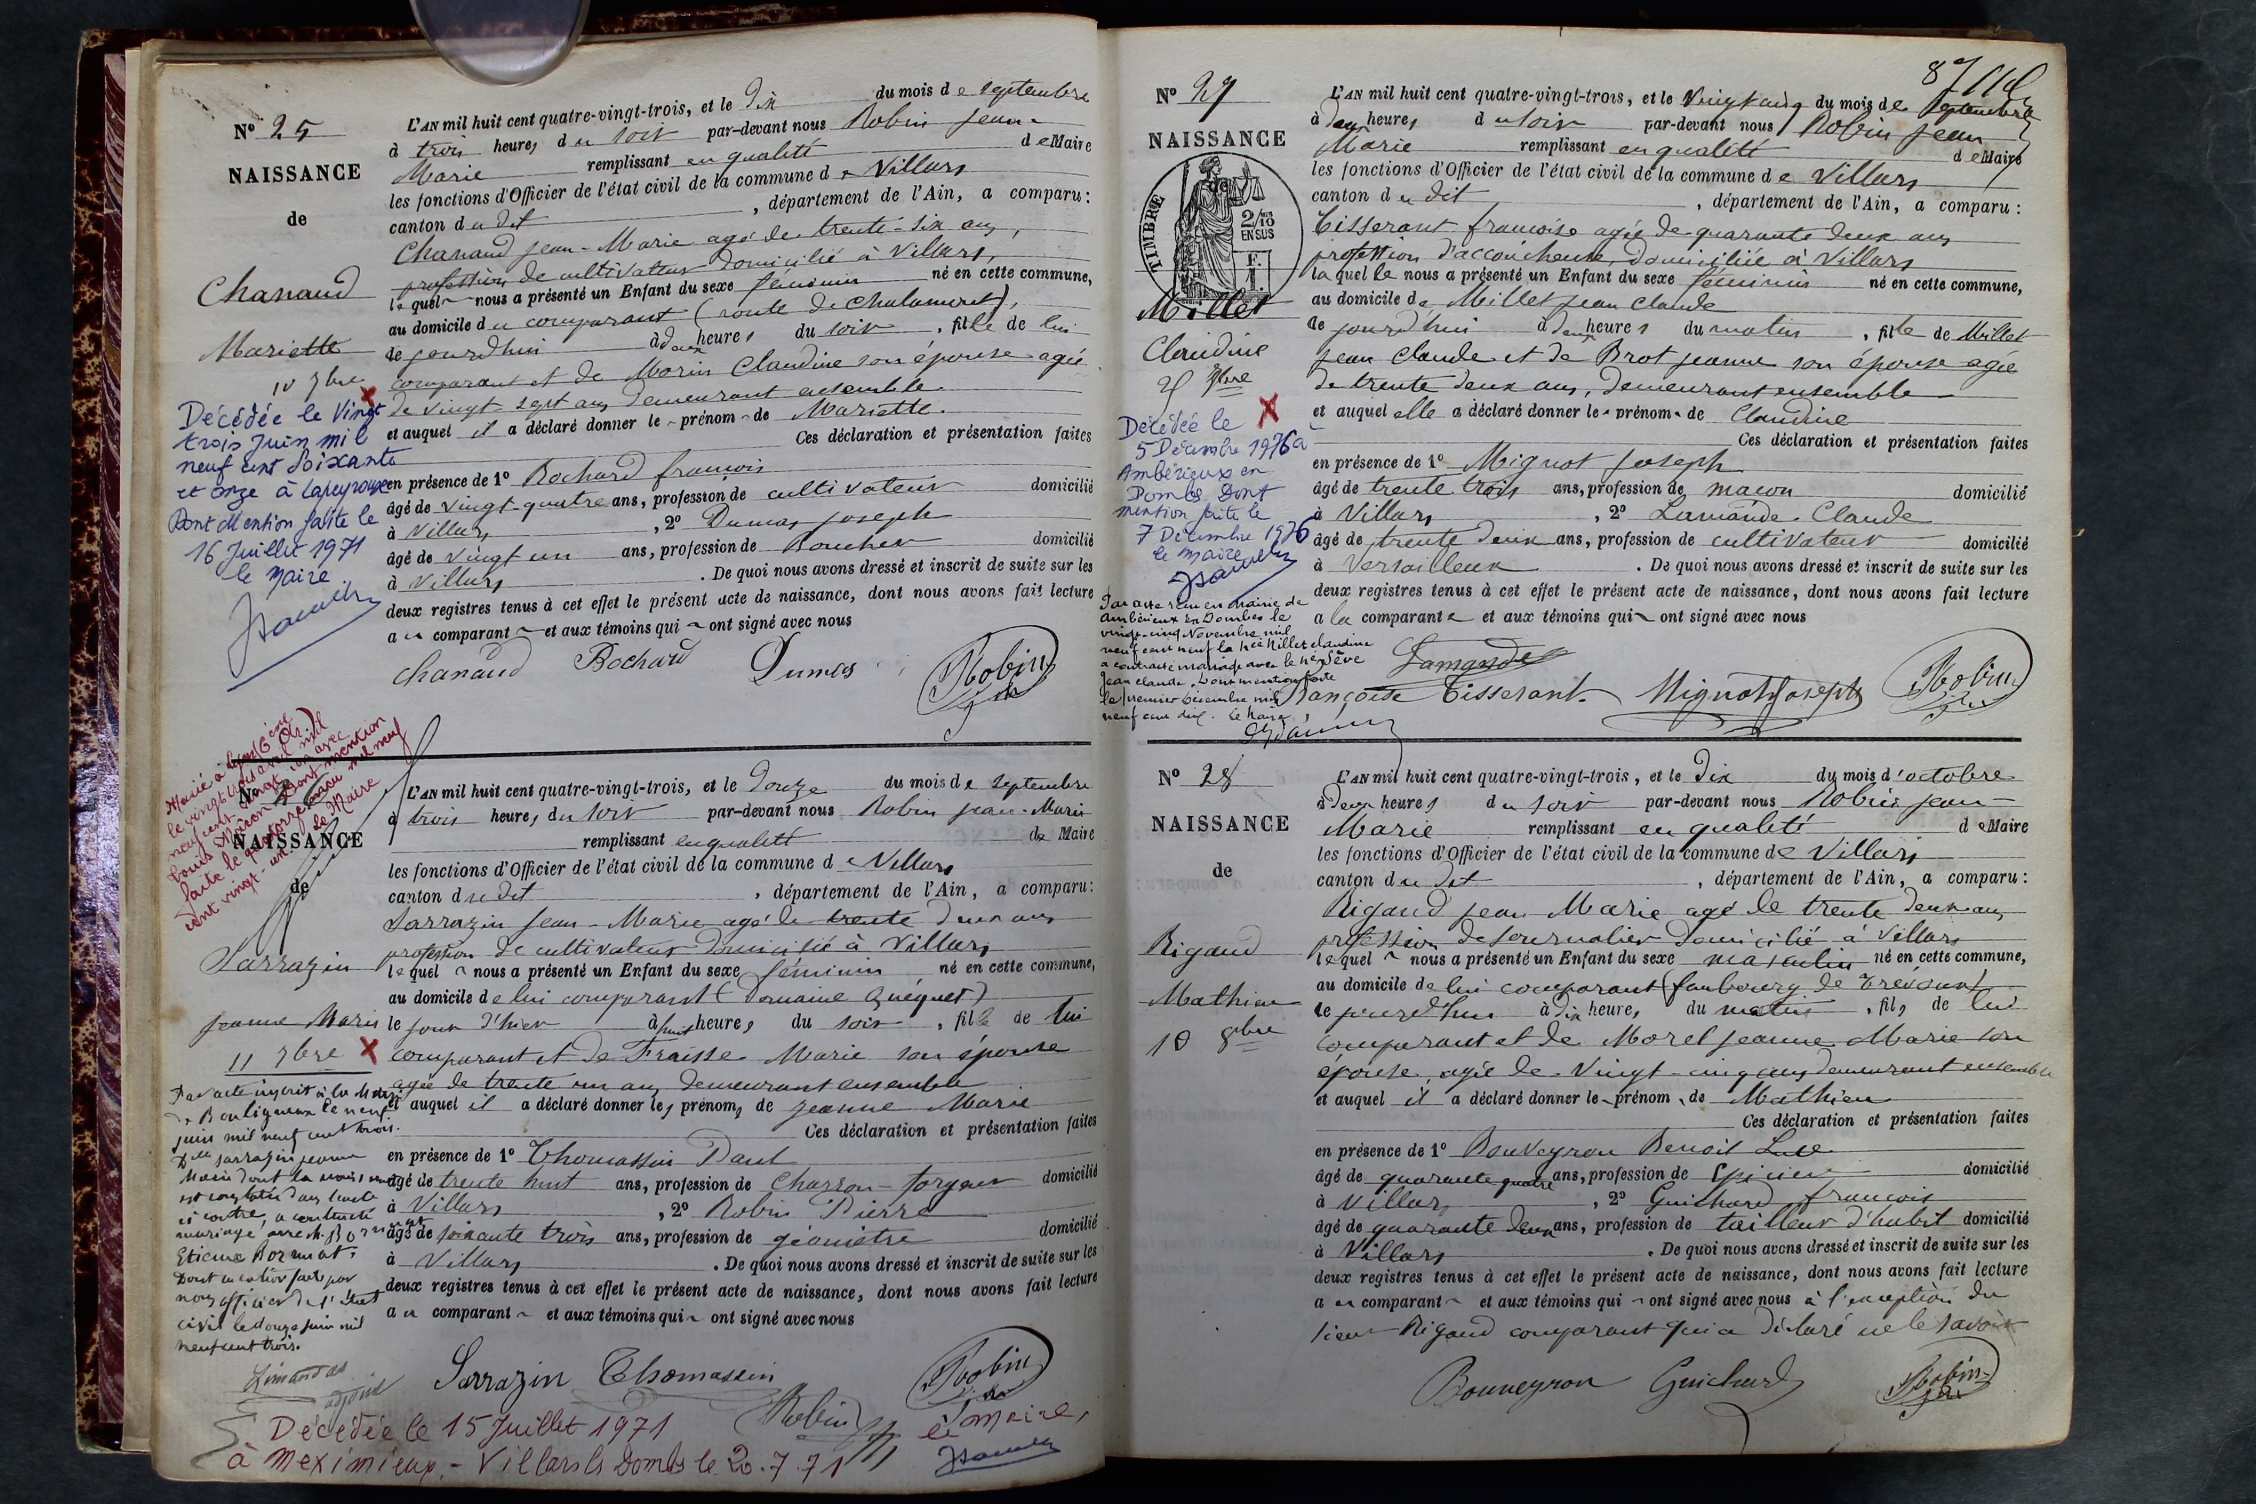 N° 25
NAISSANCE
de
Chanaud
Mariette
10 7bre
Décédée le Vingt
trois Juin mil
neuf cent Soixante
et onze à Lapeyrouse
Dont Mention faite le
16 Juillet 1971
le Maire
L'AN mil huit cent quatre-vingt-trois, et le dix du mois de septembre
à trois heures du soir par-devant nous Robin Jean-
Marie remplissant en qualité de Maire
les fonctions d'Officier de l'état civil de la commune de Villars
canton du dit , département de l'Ain, a comparu:
Chanaud Jean-Marie agé de trente-six ans,
profession de cultivateur domicilié à Villars,
lequel nous a présenté un Enfant du sexe féminin né en cette commune,
au domicile du comparant (route de Chalamont),
le jourd'hui à deux heures du soir , fille de lui
comparant et de Morin Claudine son épouse agée
de vingt-sept ans demeurant ensemble
et auquel il a déclaré donner le prénom de Mariette.
Ces déclaration et présentation faites
en présence de 1° Bochard françois
âgé de vingt-quatre ans, profession de cultivateur domicilié
à Villars , 2° Dumas Joseph
âgé de vingt un ans, profession de Boucher domicilié
à Villars . De quoi nous avons dressé et inscrit de suite sur les
deux registres tenus à cet effet le présent acte de naissance, dont nous avons fait lecture
au comparant et aux témoins qui ont signé avec nous
Chanaud Bochard Dumas Robin
Marié à Lyon 6ème
le vingt trois avril mil
neuf cent vingt un avec
Louis Dont mention
faite le quatorze mai mil neuf
cent vingt-un Le Maire
NAISSANCE
de
Sarrazin
Jeanne Marie
11 7bre
Par acte inscrit à la Mairie
de Bouligneux le neuf
juin mil neuf cent trois.
Delle Sarrazin Jeanne
Marie dont la naissance
est constatée dans l'acte
ci contre, a contracté
mariage avec M. Bornat
Etienne Bornat.
Dont mention faite par
nous officier de l'état
civil le douze juin mil
neuf cent trois.
adjoint
L'AN mil huit cent quatre-vingt-trois, et le douze du mois de septembre
à trois heures du soir par-devant nous Robin Jean-Marie
remplissant en qualité de Maire
les fonctions d'Officier de l'état civil de la commune de Villars
canton du dit , département de l'Ain, a comparu:
Sarrazin Jean-Marie agé de trente deux ans
profession de cultivateur domicilié à Villars
lequel nous a présenté un Enfant du sexe féminin né en cette commune,
au domicile de lui comparant (Domaine Quéquet)
le jour d'hier à huit heures du soir , fille de lui
comparant et de Fraisse Marie son épouse
agée de trente un ans demeurant ensemble
et auquel il a déclaré donner les prénoms de Jeanne Marie
Ces déclaration et présentation faites
en présence de 1° Thomassin Paul
âgé de trente huit ans, profession de Charron-forgeur domicilié
à Villars , 2° Robin Pierre
âgé de soixante trois ans, profession de géomètre domicilié
à Villars . De quoi nous avons dressé et inscrit de suite sur les
deux registres tenus à cet effet le présent acte de naissance, dont nous avons fait lecture
au comparant et aux témoins qui ont signé avec nous
Sarrazin Thomassin Robin
Robin
Décédée le 15 Juillet 1971 le Maire,
à Meximieux. - Villars les Dombes le 20.7.71
87
N° 27
NAISSANCE
de
TIMBRE
2/10 EN SUS
Millet
Claudine
25 7bre
Décédée le
5 Décembre 1976 à
Ambérieux en
Dombes Dont
mention faite le
7 Décembre 1976
le Maire
Par acte reçu en mairie de
Ambérieux en Dombes le
vingt-cinq Novembre mil
neuf cent neuf la née Millet Claudine
a contracté mariage avec le né Sève
Jean Claude. Dont mention faite
le premier Décembre mil
neuf cent dix. Le Maire,
L'AN mil huit cent quatre-vingt-trois, et le Vingt cinq du mois de Septembre
à deux heures du soir par-devant nous Robin Jean
Marie remplissant en qualité de Maire
les fonctions d'Officier de l'état civil de la commune de Villars
canton du dit , département de l'Ain, a comparu:
Tisserant françoise agée de quarante deux ans
profession d'accoucheuse, domiciliée à Villars
laquelle nous a présenté un Enfant du sexe féminin né en cette commune,
au domicile de Millet Jean Claude
le jourd'hui à deux heures du matin , fille de Millet
Jean Claude et de Brot Jeanne son épouse agée
de trente deux ans, demeurant ensemble
et auquel elle a déclaré donner le prénom de Claudine
Ces déclaration et présentation faites
en présence de 1° Mignot Joseph
âgé de trente trois ans, profession de maçon domicilié
à Villars , 2° Lamande Claude
âgé de trente deux ans, profession de cultivateur domicilié
à Versailleux . De quoi nous avons dressé et inscrit de suite sur les
deux registres tenus à cet effet le présent acte de naissance, dont nous avons fait lecture
a la comparante et aux témoins qui ont signé avec nous
Lamande
Françoise Tisserant Mignot Joseph Robin
N° 28
NAISSANCE
de
Rigaud
Mathieu
10 8bre
L'AN mil huit cent quatre-vingt-trois, et le Dix du mois d'octobre
à deux heures du soir par-devant nous Robin Jean-
Marie remplissant en qualité de Maire
les fonctions d'Officier de l'état civil de la commune de Villars
canton du dit , département de l'Ain, a comparu:
Rigaud Jean Marie agé de trente deux ans
profession de Journalier domicilié à Villars
lequel nous a présenté un Enfant du sexe masculin né en cette commune,
au domicile de lui comparant (faubourg de Trévoux)
le jourd'hui à dix heures du matin , fils de lui
comparant et de Morel Jeanne Marie son
épouse, agée de Vingt-cinq ans demeurant ensemble
et auquel il a déclaré donner le prénom de Mathieu
Ces déclaration et présentation faites
en présence de 1° Bouveyron Benoit Luc
âgé de quarante quatre ans, profession de Epicier domicilié
à Villars , 2° Guichard françois
âgé de quarante deux ans, profession de tailleur d'habit domicilié
à Villars . De quoi nous avons dressé et inscrit de suite sur les
deux registres tenus à cet effet le présent acte de naissance, dont nous avons fait lecture
au comparant et aux témoins qui ont signé avec nous à l'exception du
sieur Rigaud comparant qui a déclaré ne le savoir
Bouveyron Guichard Robin